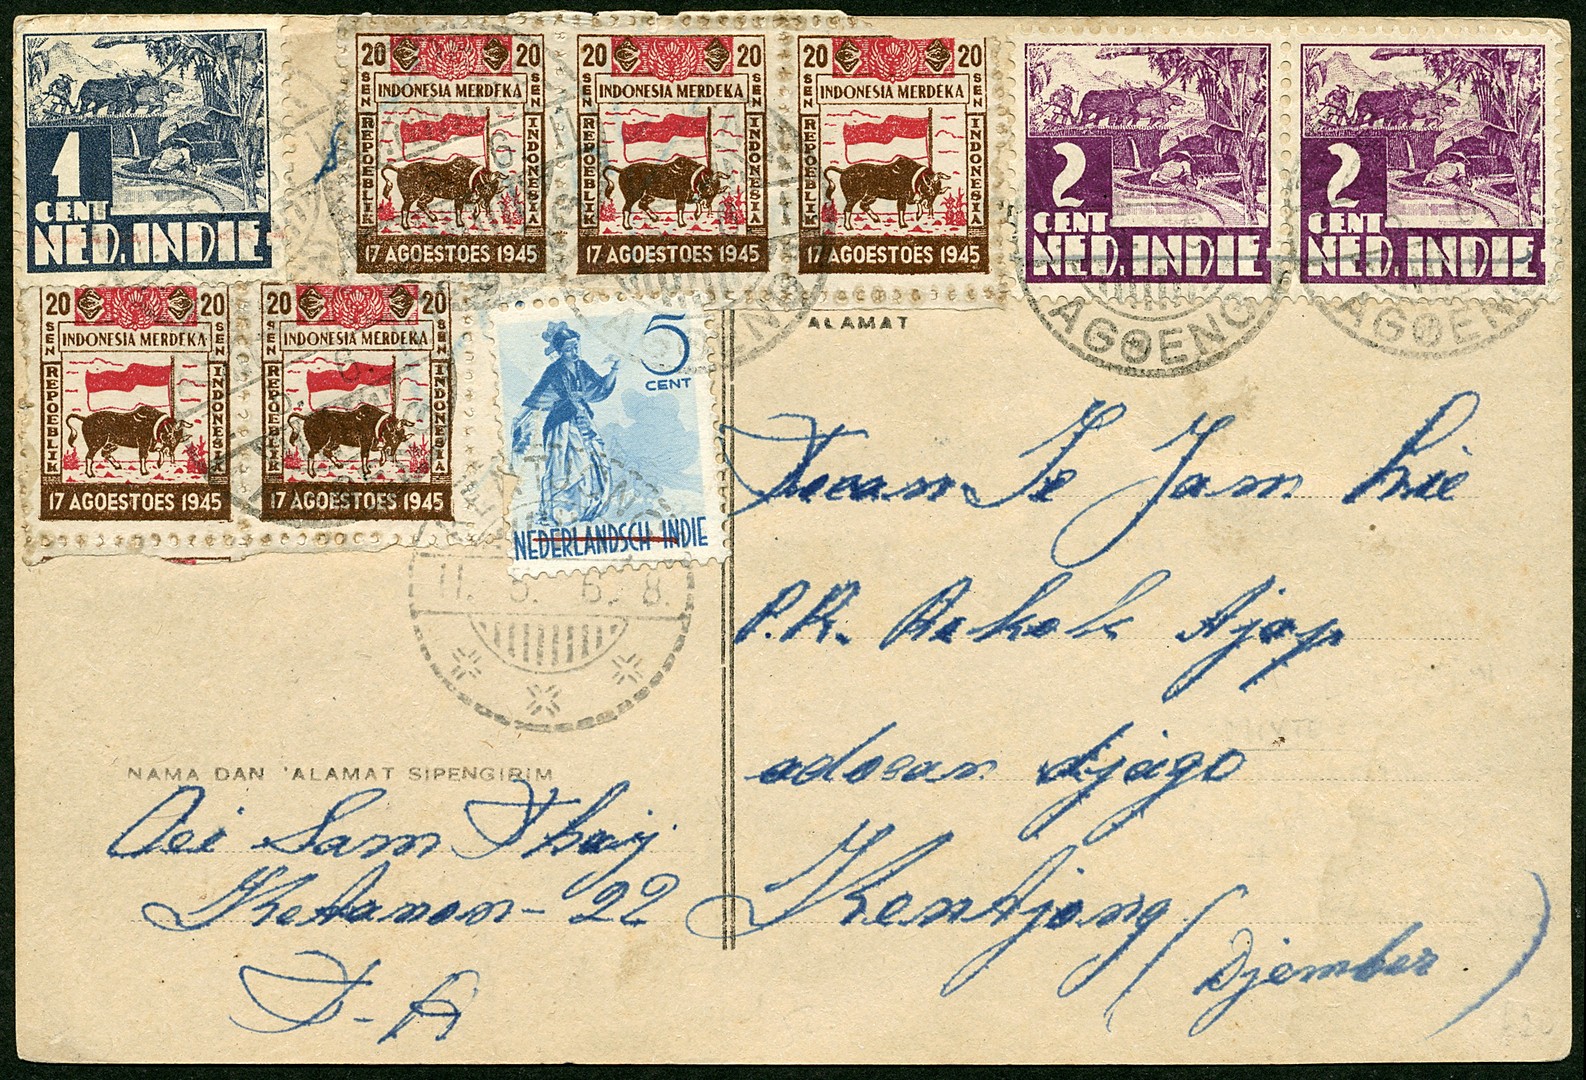 1
CENT
NED. INDIE
20 20
SEN
INDONESIA MERDEKA
REPOEBLIK
INDONESIA
17 AGOESTOES 1945
20 20
SEN
INDONESIA MERDEKA
REPOEBLIK
INDONESIA
17 AGOESTOES 1945
20 20
SEN
INDONESIA MERDEKA
REPOEBLIK
INDONESIA
17 AGOESTOES 1945
2
CENT
NED. INDIE
2
CENT
NED. INDIE
20 20
SEN
INDONESIA MERDEKA
REPOEBLIK
INDONESIA
17 AGOESTOES 1945
20 20
SEN
INDONESIA MERDEKA
REPOEBLIK
INDONESIA
17 AGOESTOES 1945
5
CENT
NEDERLANDSCH-INDIE
AGOENG
AGOEN
ALAMAT
Tuan Te Jam hie
P.R. Rokok Ajap
adosan djago
Kentjong
(Djember)
NAMA DAN ALAMAT SIPENGIRIM
Oei Sam Thaij
Ketanon-22
T-A